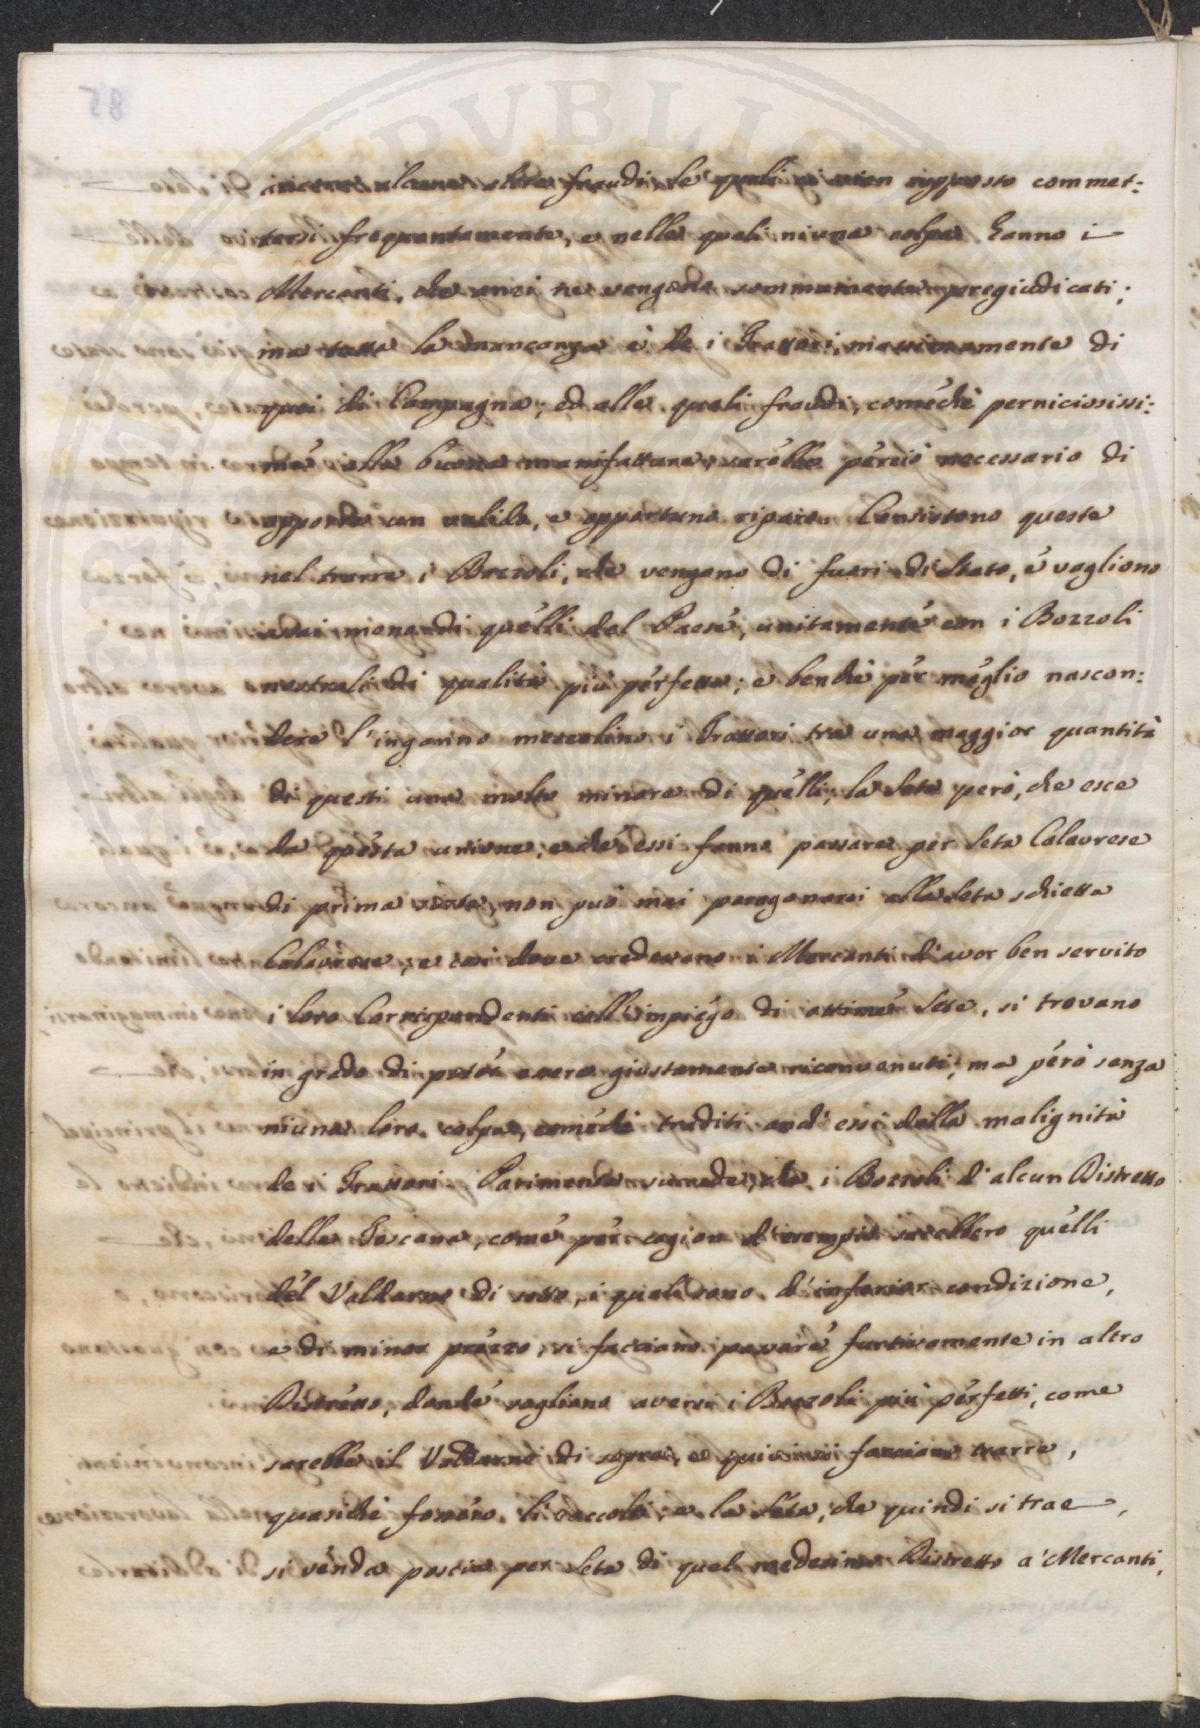 ancora alcune altre fraudi, le quali ci vien supposto commet:
tersi frequentemente, e nelle quali niuna colpa hanno i
Mercanti, che anzi ne vengono sommamente pregiudicati;
ma tutta la mancanza è de i Trattori, massimamente di
quei di Campagna; ed alle quali fraudi, comechè perniciosissi:
me alla buona manifattura, sarebbe perciò necessario di
apporvi un valido, e opportuno riparo. Consistono queste
nel trarre i Bozzoli, che vengono di fuori di Stato, e vagliono
assai meno di quelli del Paese, unitamente con i Bozzoli
nostrali di qualità più perfetta; e benchè per meglio nascon:
dere l'inganno mescolino i Trattori tra una maggior quantità
di questi una molto minore di quelli, la Seta però, che esce
da questa unione, e che essi fanno passare per Seta Calavrese
di prima sorta, non può mai paragonarsi alla Seta schietta
Calavrese, e così dove credevano i Mercanti d'aver ben servito
i loro Corrispondenti coll'impiego di ottime Sete, si trovano
in grado di poter essere giustamente riconvenuti, ma però senza
niuna loro colpa, comechè traditi anch'essi dalla malignità
de i Trattori. Parimente succede, che i Bozzoli d'alcun Distretto
della Toscana, come per cagion d'esempio sarebbero quelli
del Valdarno di sotto, i quali sono d'inferior condizione,
e di minor prezzo, si facciano passare furtivamente in altro
Distretto, donde vogliono aversi i Bozzoli più perfetti, come
sarebbe il Valdarno di sopra, e quivi si facciano trarre,
quasichè fossero lì raccolti, e la Seta, che quindi si trae,
si venda poscia per Seta di quel medesimo Distretto a' Mercanti,